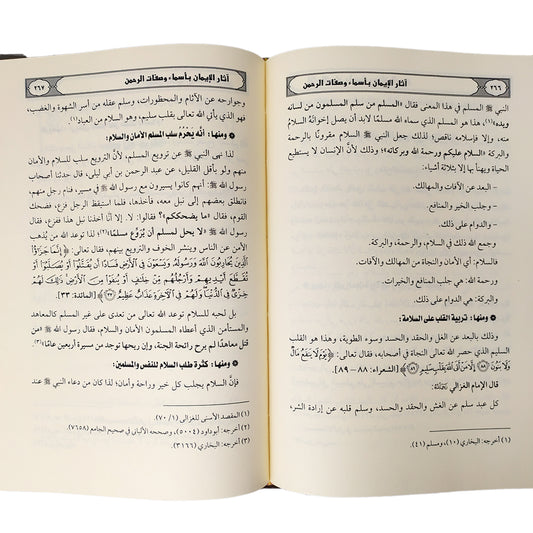 آثار الإيمان بأسماء وصفات الرحمن
٢٦٦
النبي ﷺ المسلم في هذا المعنى فقال «المسلم من سلم المسلمون من لسانه
ويده»(١)، هذا هو المسلم الذي سماه الله مسلمًا لابد أن يصل إخوانه السلامُ
منه، وإلا فإسلامه ناقص؛ لذلك جعل النبي ﷺ السلام مقرونًا بالرحمة
والبركة «السلام عليكم ورحمة الله وبركاته»؛ وذلك لأن الإنسان لا يستطيع
الحياة ويهنأ بها إلا بثلاثة أشياء:
– البعد عن الآفات والمهالك.
– وجلب الخير والمنافع.
– والدوام على ذلك.
وجمع الله ذلك في السلام، والرحمة، والبركة.
فالسلام: أي الأمان والنجاة من المهالك والآفات.
ورحمة الله: هي جلب المنافع والخيرات.
والبركة: هي الدوام على ذلك.
● ومنها: تربية القلب على السلامة:
وذلك بالبعد عن الغل والحقد والحسد وسوء الطوية، وهذا هو القلب
السليم الذي حصر الله تعالى النجاة في أصحابه، فقال تعالى: ﴿يَوْمَ لَا يَنفَعُ مَالٌ
وَلَا بَنُونَ ۝٨٨ إِلَّا مَنْ أَتَى اللَّهَ بِقَلْبٍ سَلِيمٍ ۝٨٩﴾ [الشعراء: ٨٨ – ٨٩].
قال الإمام الغزالي
كل عبد سلم عن الغش والحقد والحسد، وسلم قلبه عن إرادة الشر،
(١) أخرجه: البخاري (١٠)، ومسلم (٤١).
آثار الإيمان بأسماء وصفات الرحمن
٢٦٧
وجوارحه عن الآثام والمحظورات، وسلم عقله من أسر الشهوة والغضب،
فهو الذي يأتي الله تعالى بقلب سليم، وهو السلام من العباد(١).
● ومنها: أنَّه يَحْرُمُ سلب المسلم الأمان والسلام:
لذا نهى النبي ﷺ عن ترويع المسلم، لأن الترويع سلب للسلام والأمان
منهم ولو بأقل القليل، عن عبد الرحمن بن أبي ليلى، قال حدثنا أصحاب
رسول الله ﷺ: أنهم كانوا يسيرون مع رسول الله ﷺ في مسير، فنام رجل منهم،
فانطلق بعضهم إلى نبل معه، فأخذها، فلما استيقظ الرجل فزع، فضحك
القوم، فقال «ما يضحككم»؟ فقالوا: لا. إلا أنَّا أخذنا نبل هذا ففزع. فقال
رسول الله ﷺ «لا يحل لمسلم أن يُرَوِّع مسلمًا»(٢)؛ لذا توعد الله من يُذهب
الأمن عن الناس وينشر الخوف والترويع بينهم، فقال تعالى: ﴿إِنَّمَا جَزَاؤُا
الَّذِينَ يُحَارِبُونَ اللَّهَ وَرَسُولَهُ وَيَسْعَوْنَ فِي الْأَرْضِ فَسَادًا أَن يُقَتَّلُوا أَوْ يُصَلَّبُوا أَوْ
تُقَطَّعَ أَيْدِيهِمْ وَأَرْجُلُهُم مِّنْ خِلَافٍ أَوْ يُنفَوْا مِنَ الْأَرْضِ ذَٰلِكَ لَهُمْ
خِزْيٌ فِي الدُّنْيَا وَلَهُمْ فِي الْآخِرَةِ عَذَابٌ عَظِيمٌ ۝٣٣﴾ [المائدة: ٣٣].
بل لحبه للسلام توعد الله تعالى من تعدى على غير المسلم كالمعاهد
والمستأمن الذي أعطاه المسلمون الأمان والسلام، فقال رسول الله ﷺ «من
قتل معاهدًا لم يرح رائحة الجنة، وإن ريحها توجد من مسيرة أربعين عامًا»(٣).
● ومنها: كثرة طلب السلام للنفس والمسلمين:
فإنَّ السلام يجلب كل خير وراحة وأمان؛ لذا كان من دعاء النبي ﷺ عند
(١) المقصد الأسنى للغزالي (١/ ٧٠).
(٢) أخرجه: أبوداود (٥٠٠٤)، وصححه الألباني في صحيح الجامع (٧٦٥٨)
(٣) أخرجه: البخاري (٣١٦٦).